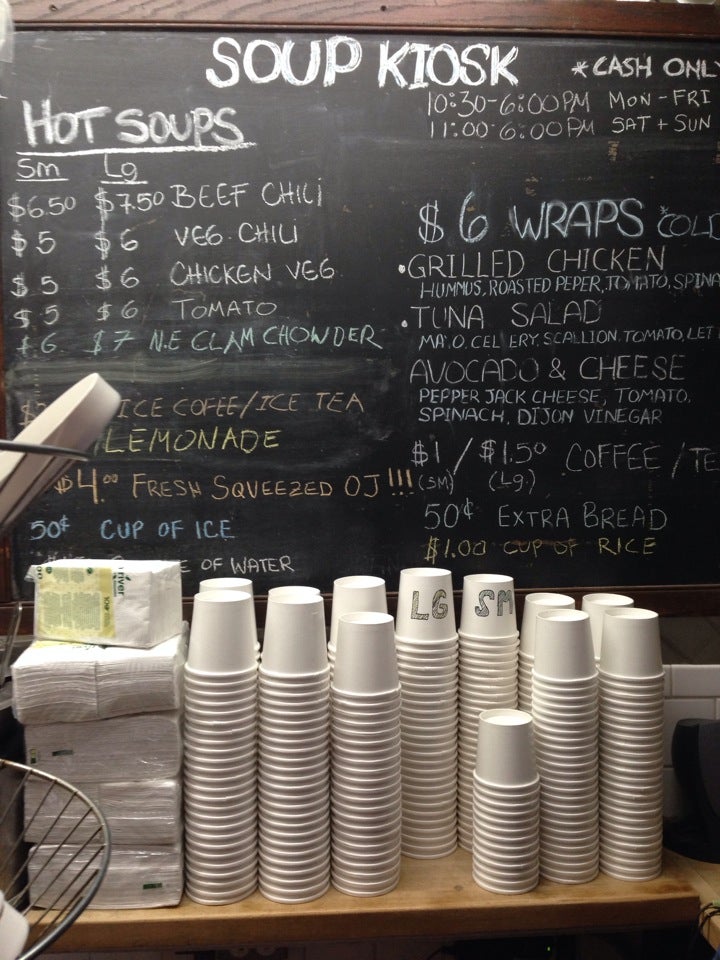 SOUP KIOSK
*CASH ONLY
10:30-6:00PM MON-FRI
11:00-6:00PM SAT + SUN
HOT SOUPS
Sm Lg
$6.50 $7.50 BEEF CHILI
$5 $6 VEG. CHILI
$5 $6 CHICKEN VEG
$5 $6 TOMATO
$6 $7 N.E CLAM CHOWDER
ICE COFEE/ICE TEA
LEMONADE
$4.00 FRESH SQUEEZED OJ!!!
50¢ CUP OF ICE
OF WATER
$6 WRAPS COLD
•GRILLED CHICKEN
HUMMUS, ROASTED PEPER, TOMATO, SPINA
•TUNA SALAD
MAYO, CELERY, SCALLION, TOMATO, LET
AVOCADO & CHEESE
PEPPER JACK CHEESE, TOMATO,
SPINACH, DIJON VINEGAR
$1/$1.50 COFFEE/TE
(SM) (Lg.)
50¢ EXTRA BREAD
$1.00 CUP OF RICE
LG SM
river